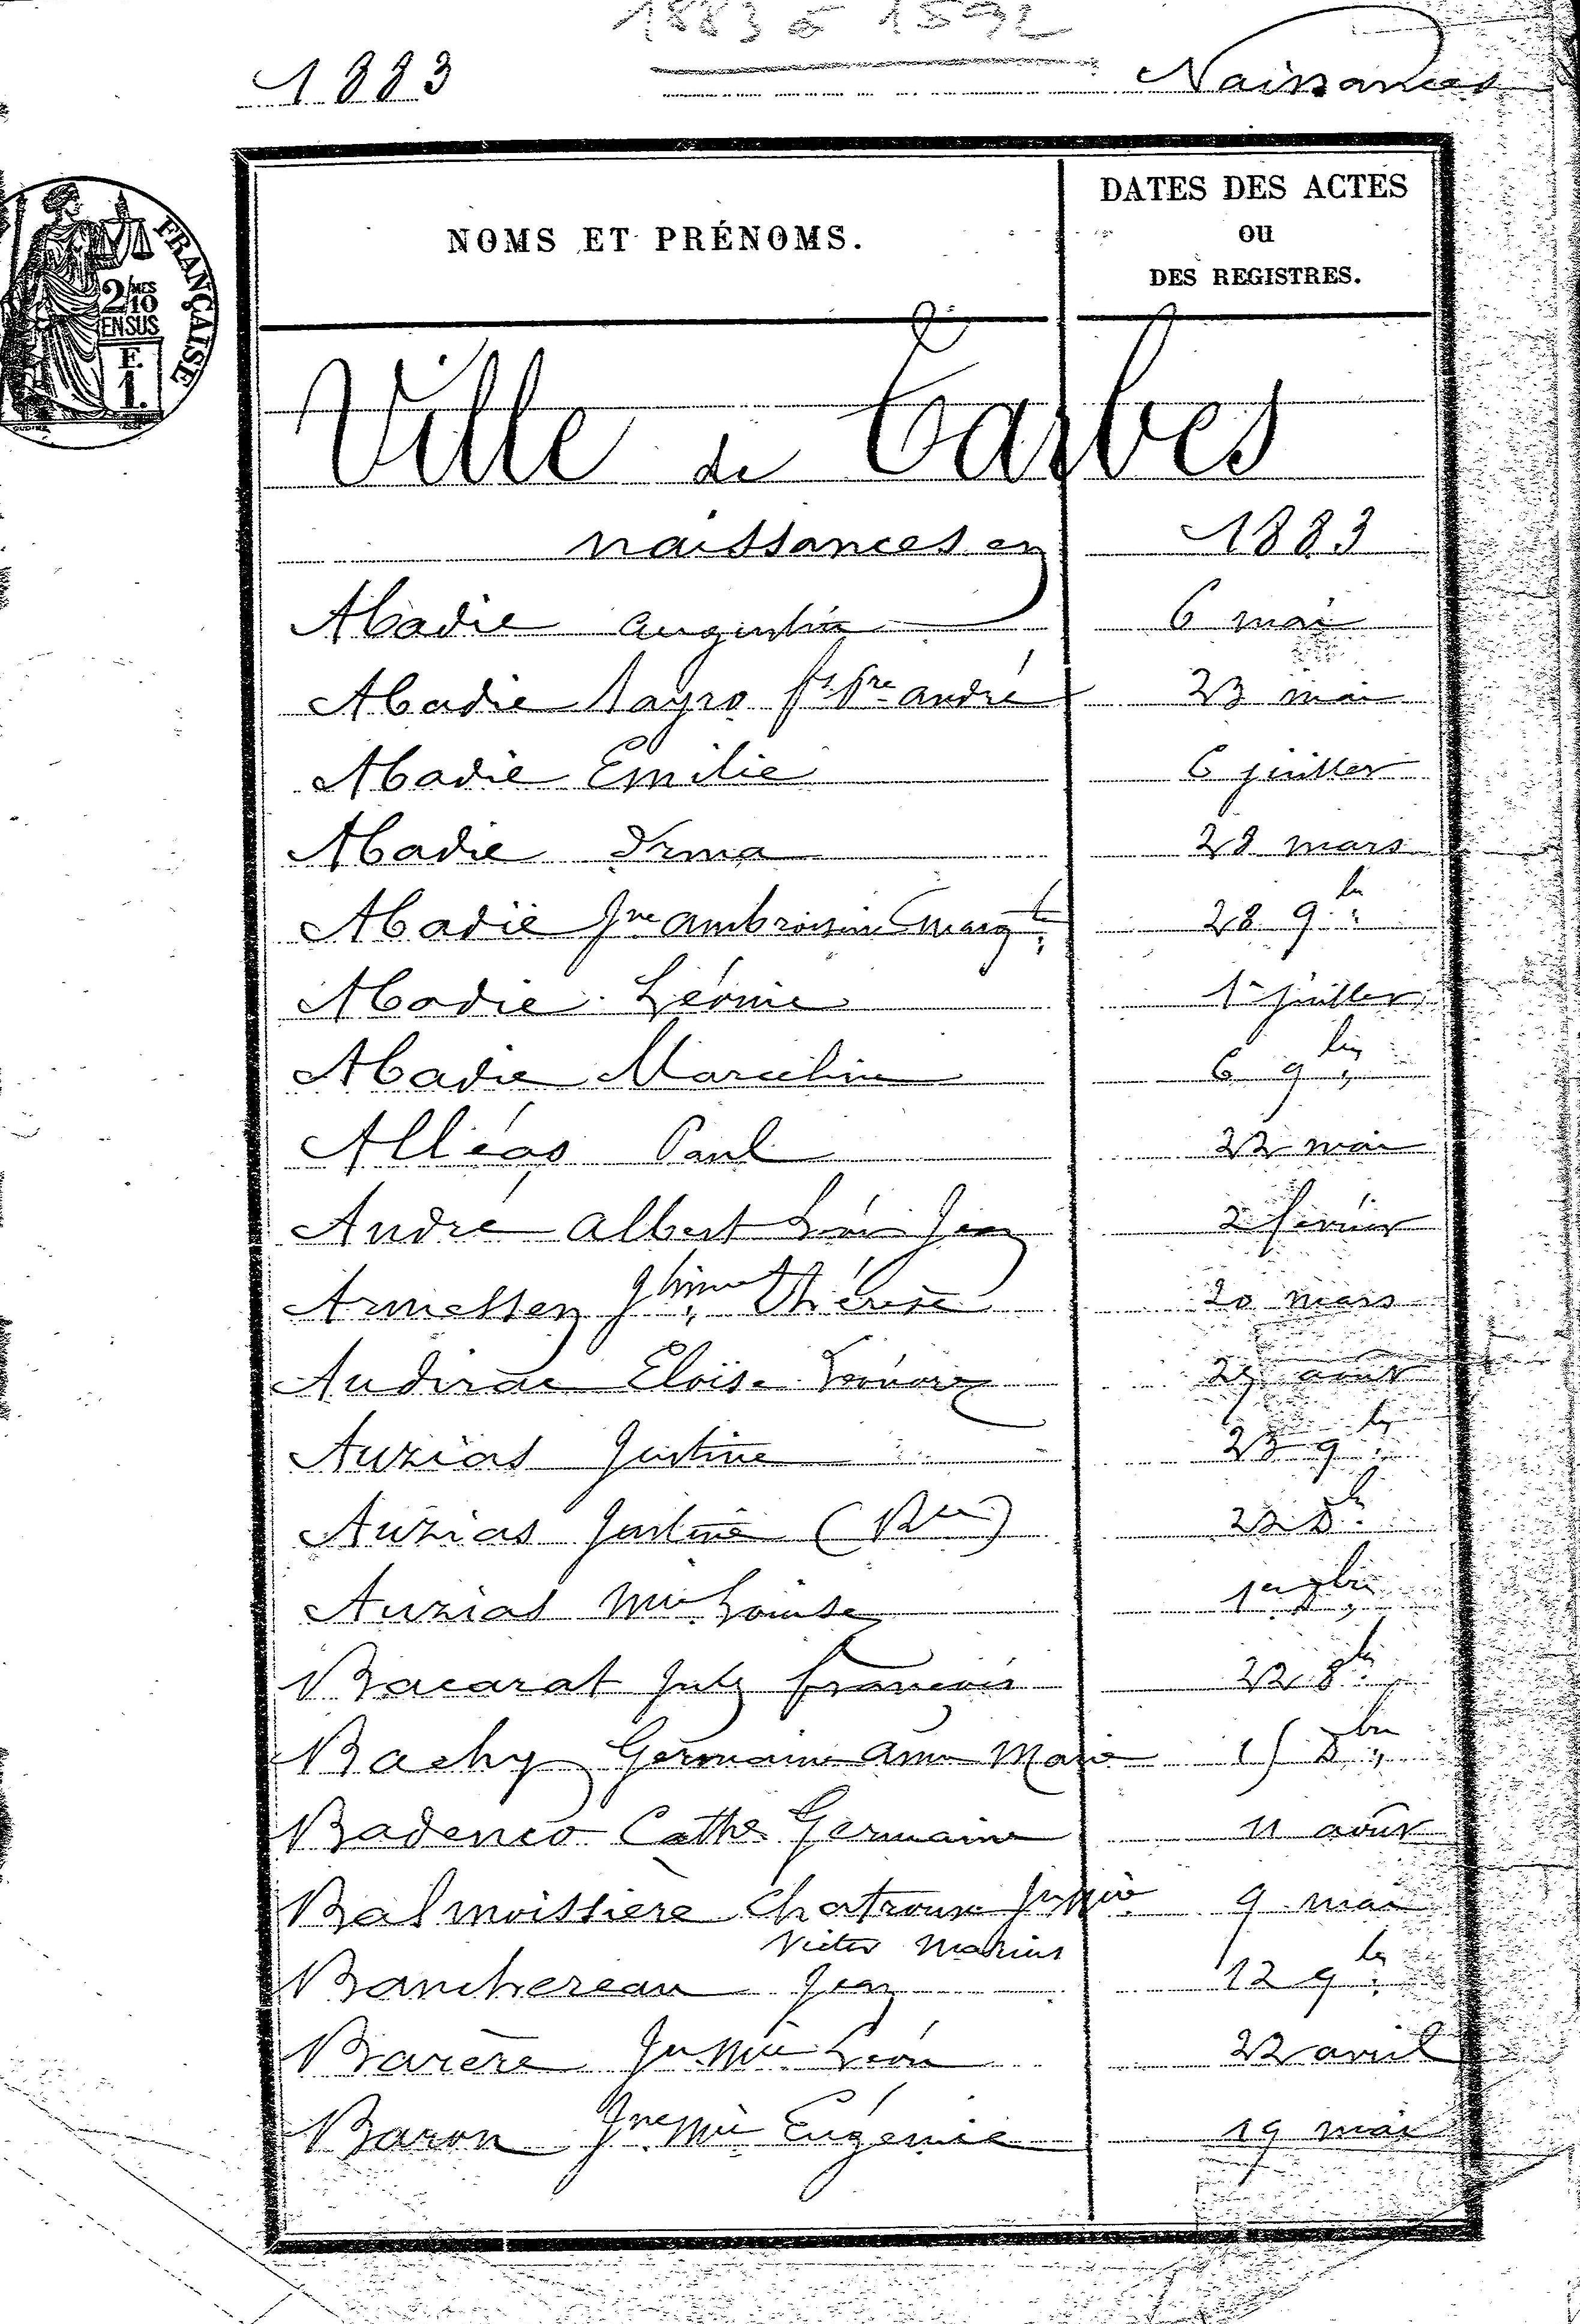 1883 à 1892
1883 Naissances
NOMS ET PRÉNOMS. DATES DES ACTES
OU
DES REGISTRES.
FRANÇAISE
2/10 MES
EN SUS
F.
1.
Ville de Tarbes
naissances en 1883
Abadie Augustin 6 mai
Abadie Nayro fs Pre André 23 mai
Abadie Emilie 6 juillet
Abadie Irma 28 mars
Abadie Jne Ambroisine Margte 28 9bre
Abadie Léonie 1er juillet
Abadie Marceline 6 9bre
Alléas Paul 22 mai
André Albert Léon Jean 2 février
Armessen Thérèse 20 mars
Audirac Eloïse Léonore août
Auzias Justine 23 9bre
Auzias Justine (Rec) 22 Xbre
Auzias Mie Louise 1er Xbre
Bacarat Jules François 22 8bre
Bachy Germaine Anne Marie 15 Xbre
Badenco Cathe Germaine 11 août
Balmoissière Chatroux Jn Mie 9 mai
Victor Marius
Banchereau Jean 12 9bre
Barère Jn Mie Léon 22 avril
Baron Jne Mie Eugénie 19 mai